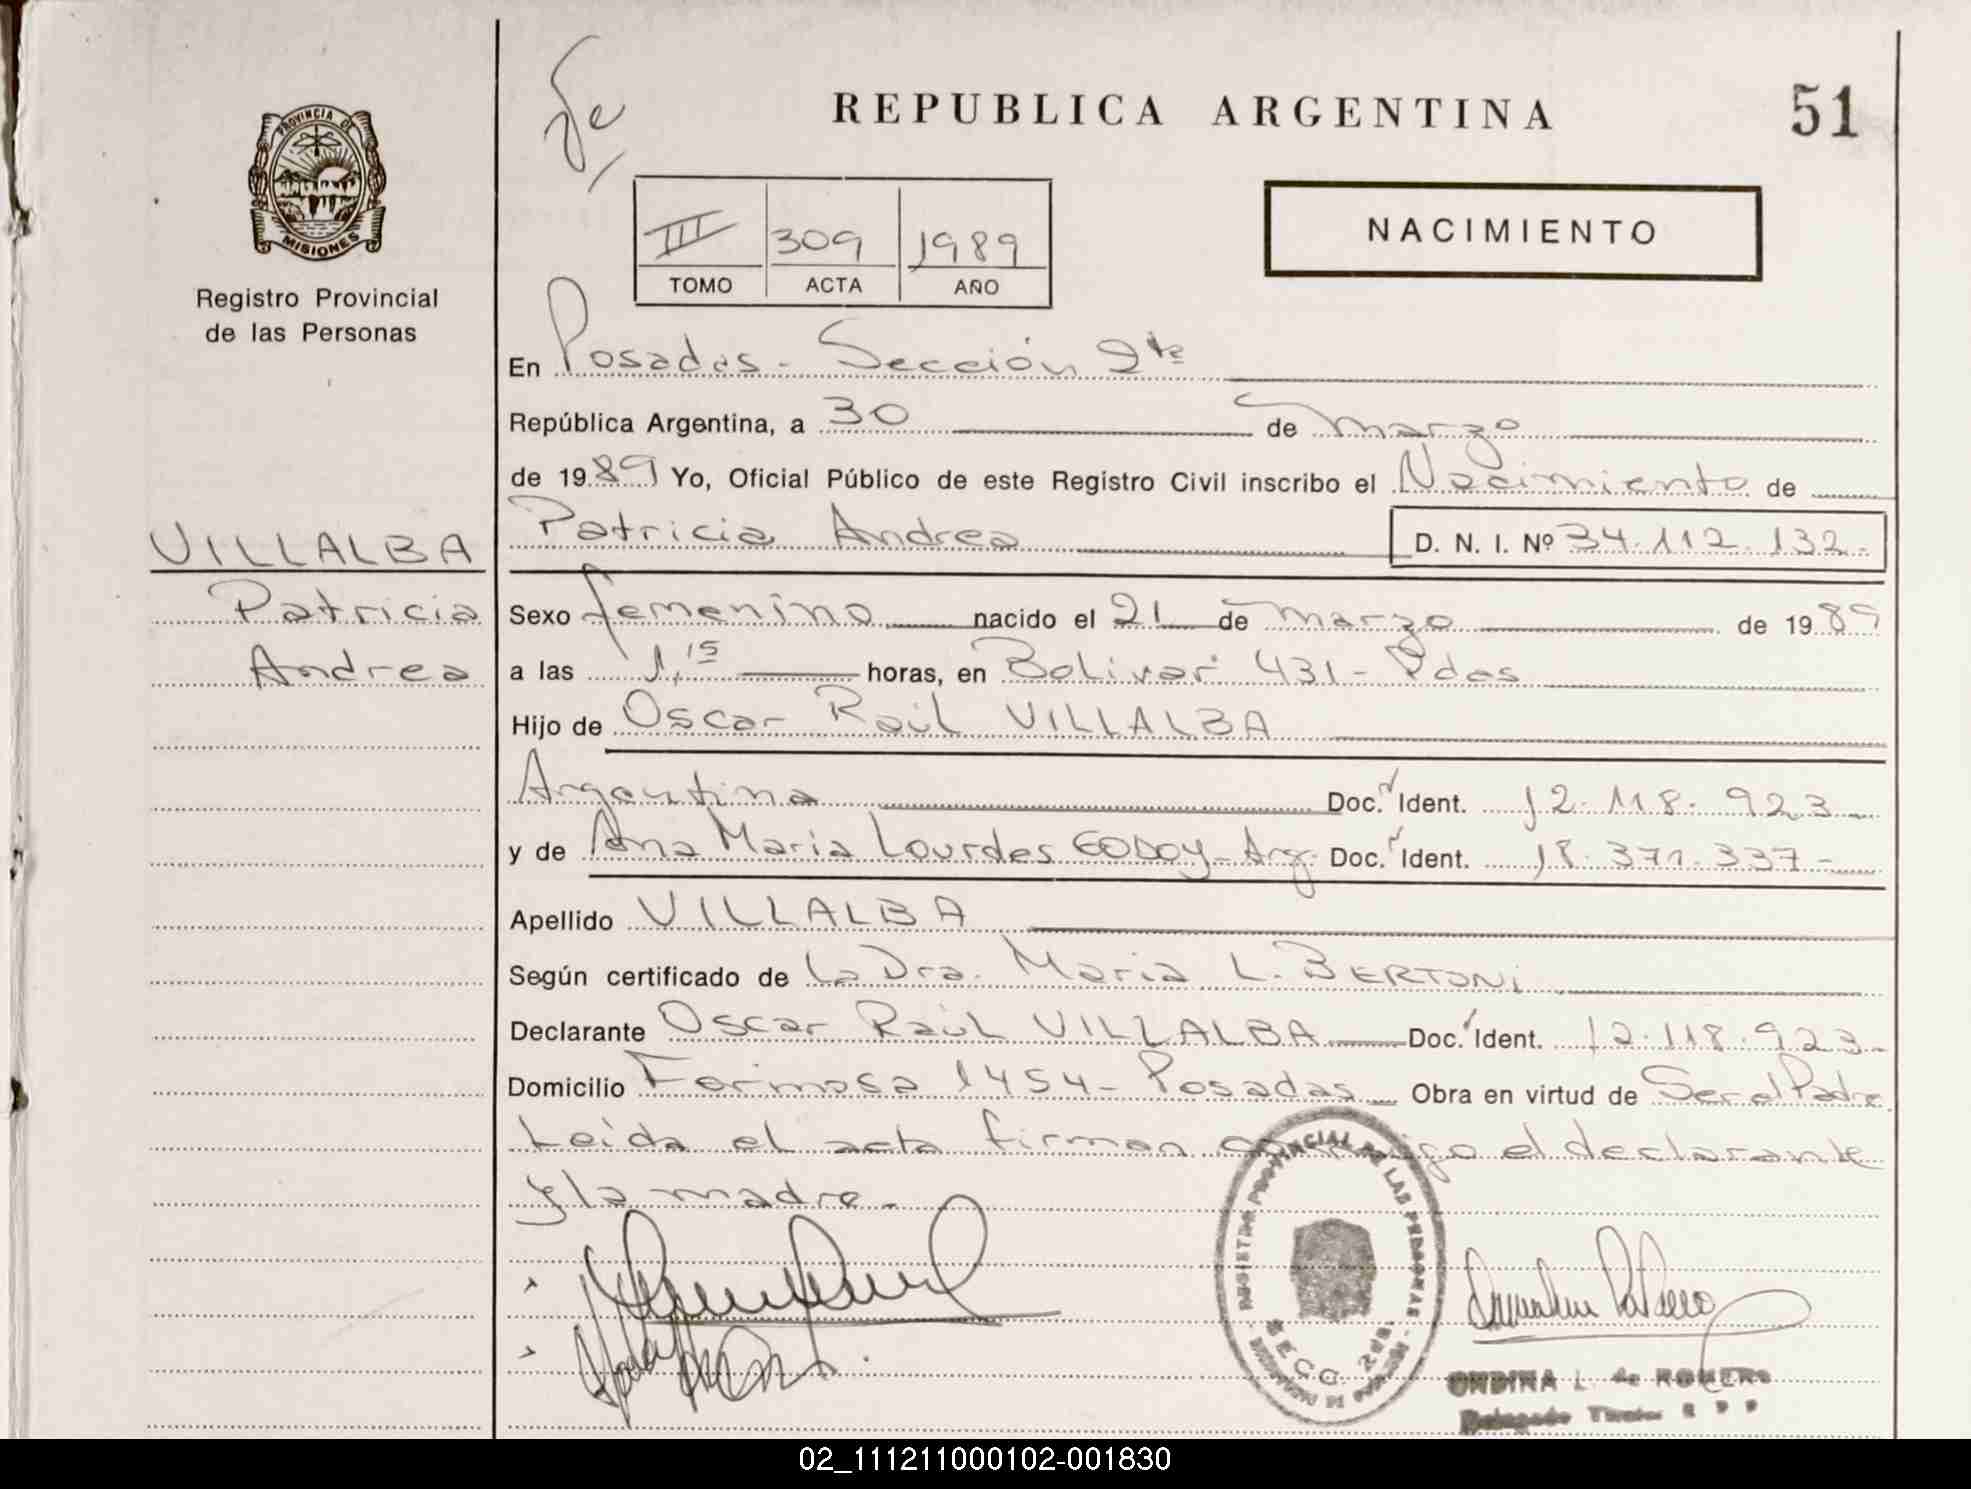 REPUBLICA ARGENTINA
51
PROVINCIA DE
MISIONES
Registro Provincial
de las Personas
III 309 1989
TOMO ACTA AÑO
NACIMIENTO
En Posadas - Sección 2da
República Argentina, a 30 de Marzo
de 1989 Yo, Oficial Público de este Registro Civil inscribo el Nacimiento de
Patricia Andrea D. N. I. Nº 34.112.132-
VILLALBA
Patricia
Andrea
Sexo femenino nacido el 21 de Marzo de 1989
a las 1,15 horas, en Bolivar 431 - Pdas
Hijo de Oscar Raúl VILLALBA
Argentina Doc. Ident. 12.118.923
y de Ana Maria Lourdes GODOY - Arg. Doc. Ident. 18.371.337-
Apellido VILLALBA
Según certificado de La Dra. Maria L. BERTONi
Declarante Oscar Raúl VILLALBA Doc. Ident. 12.118.923-
Domicilio Formosa 1454 - Posadas Obra en virtud de Ser el Padre
Leida el acta firman conmigo el declarante
y la madre.-
REGISTRO PROVINCIAL DE LAS PERSONAS
SECC. 2da.
ONDINA L. de ROMERO
Delegado Titular R P P
02_111211000102-001830